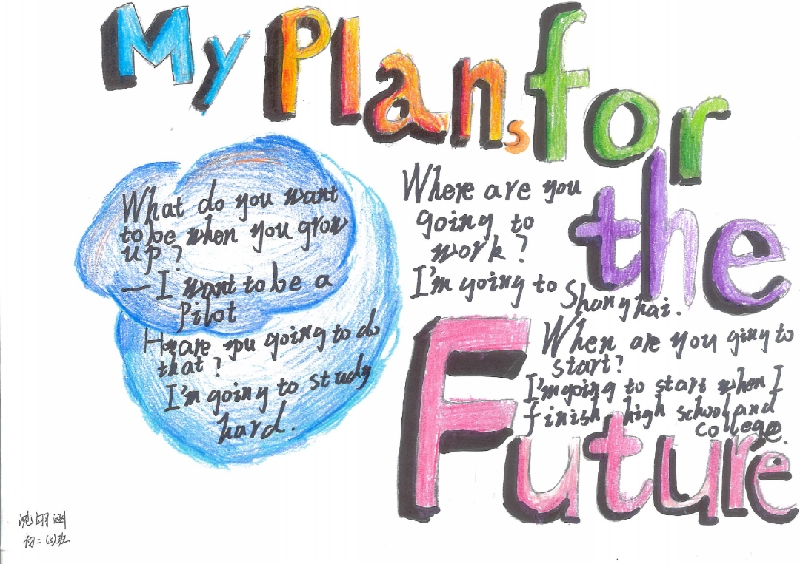 My Plans for
the
Future
What do you want
to be when you grow
up?
— I want to be a
Pilot
How are you going to do
that?
I'm going to study
hard.
Where are you
going to
work?
I'm going to
Shanghai.
When are you going to
start?
I'm going to start when I
finish high school and
college.